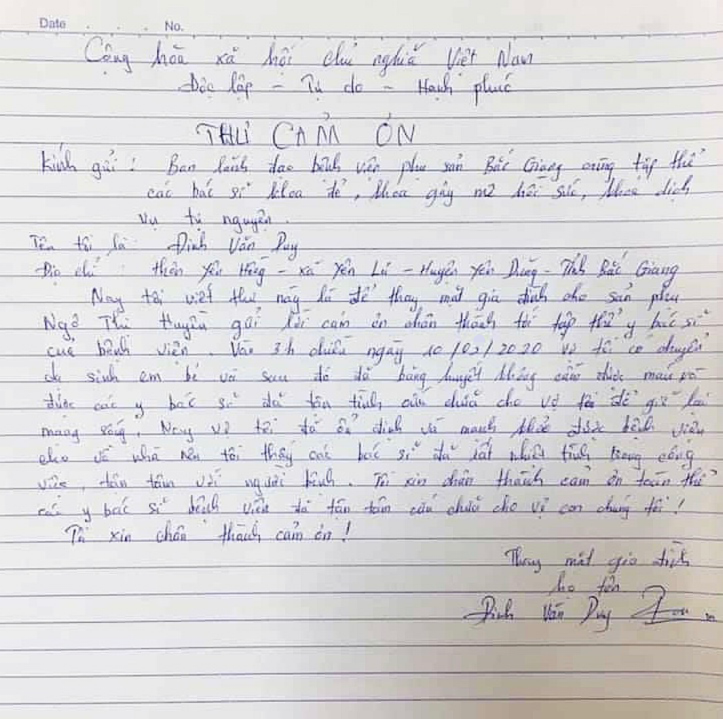 Date . . No.
Cộng hòa xã hội chủ nghĩa Việt Nam
Độc lập - Tự do - Hạnh phúc
THƯ CẢM ƠN
Kính gửi : Ban lãnh đạo bệnh viện phụ sản Bắc Giang cùng tập thể
các bác sĩ khoa đẻ, khoa gây mê hồi sức, khoa dịch
vụ tự nguyện.
Tên tôi là : Đinh Văn Duy
Địa chỉ : thôn Yên Hồng - xã Yên Lư - Huyện Yên Dũng - Tỉnh Bắc Giang
Nay tôi viết thư này là để thay mặt gia đình cho sản phụ
Ngô Thị Huyền gửi lời cảm ơn chân thành tới tập thể y bác sĩ
của bệnh viện. Vào 3h chiều ngày 10/02/2020 vợ tôi có chuyển
dạ sinh em bé và sau đó đã băng huyết không cầm được máu và
được các y bác sĩ đã tận tình cứu chữa cho vợ tôi để giữ lại
mạng sống, Nay vợ tôi đã ổn định và mạnh khỏe được bệnh viện
cho về nhà nên tôi thấy các bác sĩ đã rất nhiệt tình trong công
việc, tận tâm với người bệnh. Tôi xin chân thành cảm ơn toàn thể
các y bác sĩ bệnh viện đã tận tâm cứu chữa cho vợ con chúng tôi !
Tôi xin chân thành cảm ơn !
Thay mặt gia đình
họ tên
Đinh Văn Duy